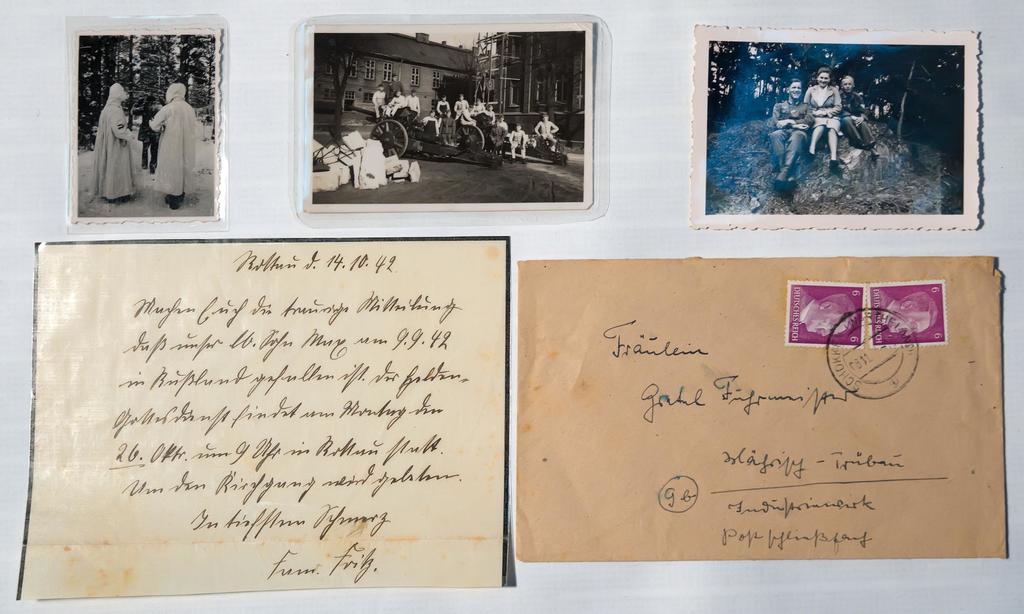 Rottau d. 14.10.42
Machen Euch die traurige Mitteilung
daß unser lb. Sohn Max am 9.9.42
in Rußland gefallen ist. Der Helden-
Gottesdienst findet am Montag den
26. Oktr. um 9 Uhr in Rottau statt.
Um den Kirchgang wird gebeten.
In tiefsten Schmerz
Fam. Fritz.
DEUTSCHES REICH
6
DEUTSCHES REICH
6
Fräulein
Gretel Fuhrmeister
Mährisch-Trübau
9b
Industriewerk
Postschließfach